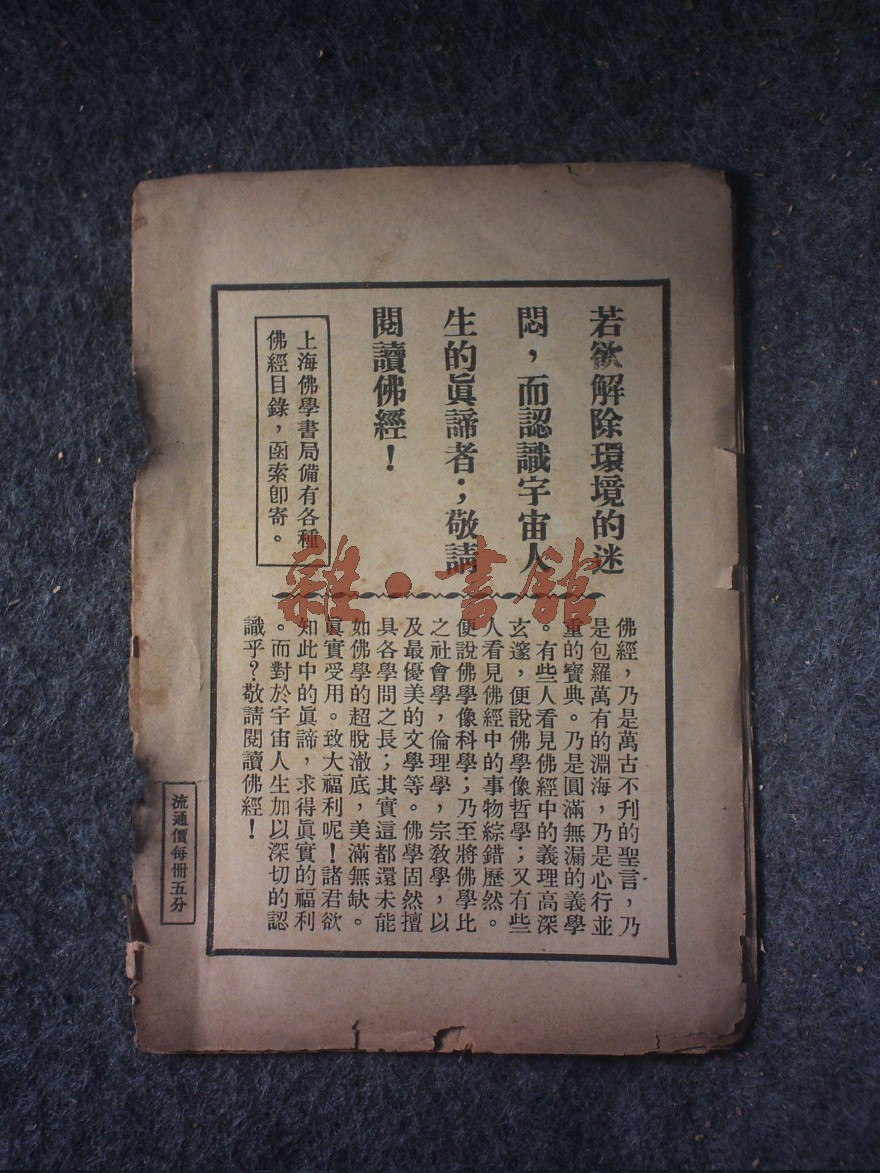 若欲解除環境的迷
悶，而認識宇宙人
生的眞諦者；敬請
閱讀佛經！
上海佛學書局備有各種
佛經目錄，函索卽寄。
佛經，乃是萬古不刋的聖言，乃
是包羅萬有的淵海，乃是心行並
重的寶典。乃是圓滿無漏的義學
。有些人看見佛經中的義理高深
玄邃，便說佛學像哲學；又有些
人看見佛經中的事物綜錯歷然。
便說佛學像科學；乃至將佛學比
之社會學，倫理學，宗敎學，以
及最優美的文學等。佛學固然擅
具各學問之長；其實這都還未能
如佛學的超脫澈底，美滿無缺。
眞實受用。致大福利呢！諸君欲
知此中的眞諦，求得眞實的福利
。而對於宇宙人生加以深切的認
識乎？敬請閱讀佛經！
流通價每冊五分
雜·書館